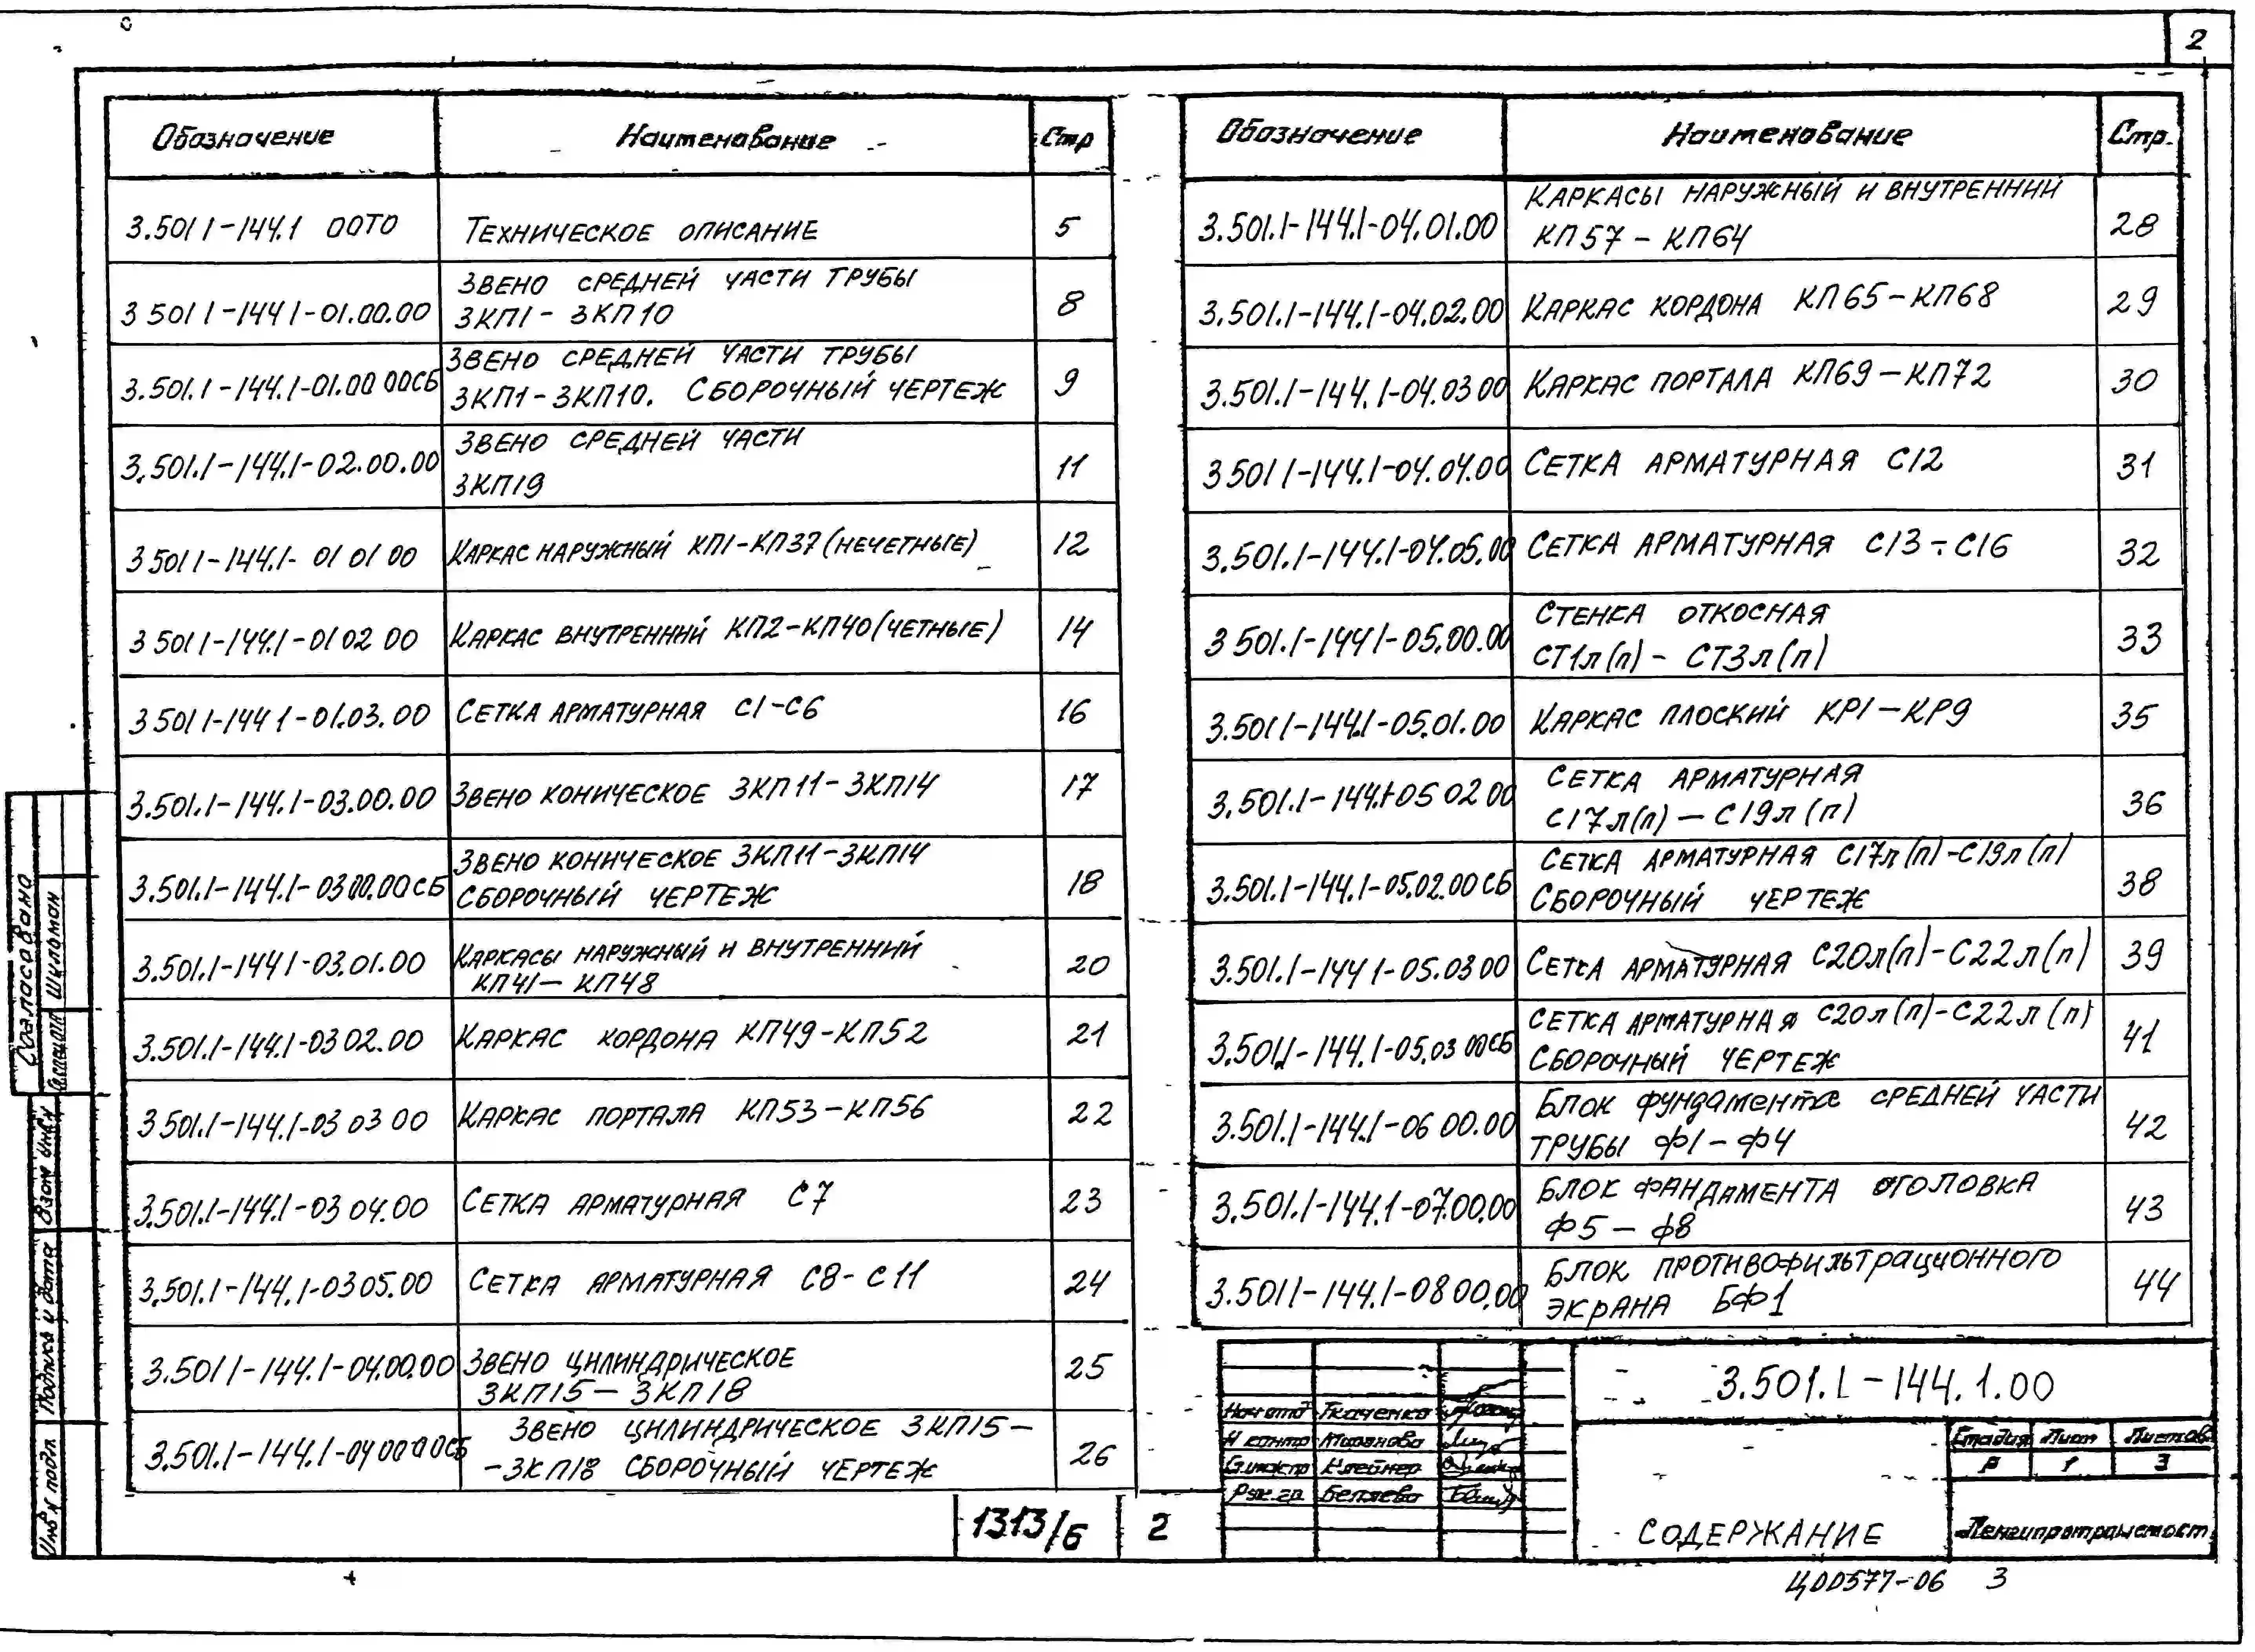 2
Обозначение Наименование Стр
3.501 1-144.1 00ТО Техническое описание 5
3 501 1-144 1-01.00.00 Звено средней части трубы
ЗКП1- ЗКП10 8
3.501.1-144.1-01.00 00СБ Звено средней части трубы
ЗКП1-ЗКП10. Сборочный чертеж 9
3.501.1-144.1-02.00.00 Звено средней части
ЗКП19 11
3 501 1-144.1- 01 01 00 Каркас наружный КП1-КП37 (нечетные) 12
3 501 1-144.1-01 02 00 Каркас внутренний КП2-КП40 (четные) 14
3 501 1-144 1-01.03.00 Сетка арматурная С1-С6 16
3.501.1-144.1-03.00.00 Звено коническое ЗКП11-ЗКП14 17
3.501.1-144.1-03 00.00СБ Звено коническое ЗКП11-ЗКП14
Сборочный чертеж 18
3.501.1-144 1-03.01.00 Каркасы наружный и внутренний
КП41-КП48 20
3.501.1-144.1-03 02.00 Каркас кордона КП49-КП52 21
3 501.1-144.1-03 03 00 Каркас портала КП53-КП56 22
3.501.1-144.1-03 04.00 Сетка арматурная С7 23
3.501.1-144.1-03 05.00 Сетка арматурная С8-С11 24
3.501 1-144.1-04.00.00 Звено цилиндрическое
ЗКП15-ЗКП18 25
3.501.1-144.1-04 00 00СБ Звено цилиндрическое ЗКП15-
-ЗКП18 сборочный чертеж 26
Обозначение Наименование Стр.
3.501.1-144.1-04.01.00 Каркасы наружный и внутренний
КП57-КП64 28
3.501.1-144.1-04.02.00 Каркас кордона КП65-КП68 29
3.501.1-144.1-04.03 00 Каркас портала КП69-КП72 30
3 501 1-144.1-04.04.00 Сетка арматурная С12 31
3.501.1-144.1-04.05.00 Сетка арматурная С13÷С16 32
3 501.1-144 1-05.00.00 Стенка откосная
СТ1л(п)- СТ3л(п) 33
3.501 1-144.1-05.01.00 Каркас плоский КР1-КР9 35
3.501.1-144.1-05 02 00 Сетка арматурная
С17л(п)-С19л(п) 36
3.501.1-144.1-05.02.00СБ Сетка арматурная С17л(п)-С19л(п)
Сборочный чертеж 38
3.501.1-144 1-05.03 00 Сетка арматурная С20л(п)-С22л(п) 39
3.501.1-144.1-05.03 00СБ Сетка арматурная С20л(п)-С22л(п)
Сборочный чертеж 41
3.501.1-144.1-06 00.00 Блок фундамента средней части
трубы Ф1-Ф4 42
3.501.1-144.1-07.00.00 Блок фандамента оголовка
Ф5-Ф8 43
3.501 1-144.1-08 00.00 Блок противофильтрационного
экрана БФ1 44
Согласовано
Шильман
Взам инв.
Подпись и дата
Инв N подл
3.501.1-144.1.00
Нач отд Ткаченко
Н контр Миронова
Гл.инж.пр Клейнер
Рук.гр. Беляева
Стадия Лист Листов
Р 1 3
Содержание
Ленгипротрансмост
1313/6 2
ЦОО577-06 3